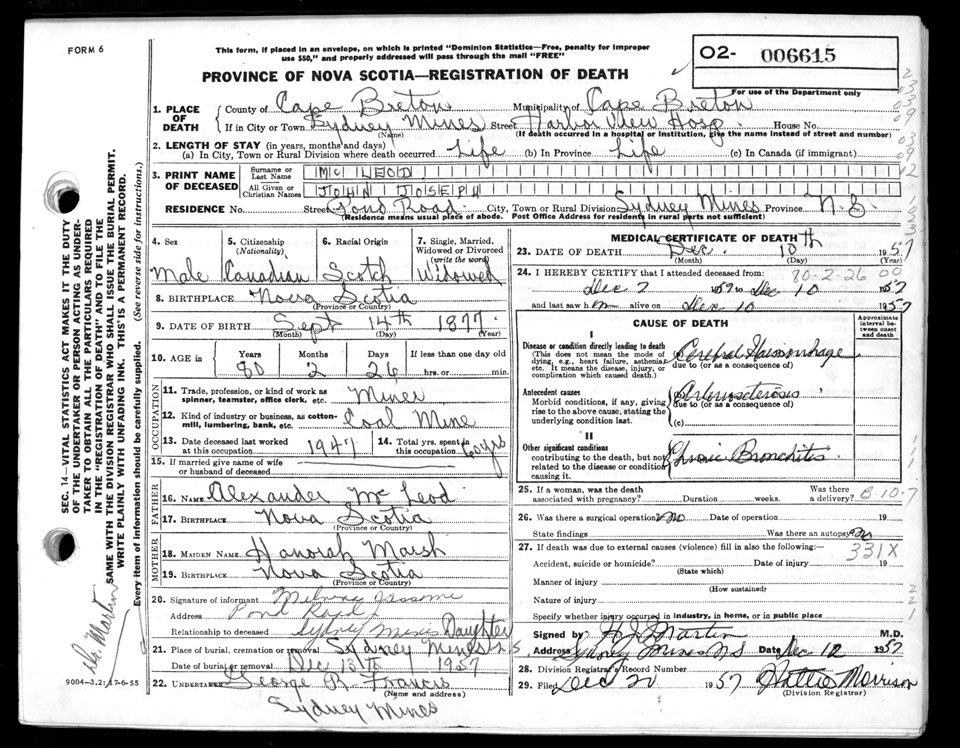 FORM 6
This form, if placed in an envelope, on which is printed "Dominion Statistics—Free, penalty for improper
use $50," and properly addressed will pass through the mail "FREE"
O2- 006615
For use of the Department only
PROVINCE OF NOVA SCOTIA—REGISTRATION OF DEATH
1. PLACE OF DEATH
County of Cape Breton Municipality of Cape Breton
If in City or Town Sydney Mines Street Harbor View Hosp. House No.
(Name) (If death occurred in a hospital or institution, give the name instead of street and number)
2. LENGTH OF STAY (in years, months and days)
(a) In City, Town or Rural Division where death occurred Life (b) In Province Life (c) In Canada (if immigrant)
3. PRINT NAME OF DECEASED
Surname or Last Name Mc LEOD
All Given or Christian Names JOHN JOSEPH
RESIDENCE No. Street Pond Road City, Town or Rural Division Sydney Mines Province N.S.
(Residence means usual place of abode. Post Office Address for residents in rural parts not sufficient)
4. Sex
Male
5. Citizenship (Nationality)
Canadian
6. Racial Origin
Scotch
7. Single, Married, Widowed or Divorced (write the word)
Widowed
8. BIRTHPLACE Nova Scotia
(Province or Country)
9. DATE OF BIRTH Sept 14th 1877
(Month) (Day) (Year)
10. AGE in Years Months Days If less than one day old
80 2 26 hrs. or min.
OCCUPATION
11. Trade, profession, or kind of work as spinner, teamster, office clerk, etc. Miner
12. Kind of industry or business, as cotton-mill, lumbering, bank, etc. Coal Mine
13. Date deceased last worked at this occupation 1947
14. Total yrs. spent in this occupation 60 yrs
15. If married give name of wife or husband of deceased
FATHER
16. NAME Alexander Mc Leod
17. BIRTHPLACE Nova Scotia
(Province or Country)
MOTHER
18. MAIDEN NAME Hanorah Marsh
19. BIRTHPLACE Nova Scotia
(Province or Country)
20. Signature of informant
Address Pond Road
Relationship to deceased Sydney Mines Daughter
21. Place of burial, cremation or removal Sydney Mines N.S.
Date of burial or removal Dec 13th 1957
22. UNDERTAKER George R. Francis
(Name and address)
Sydney Mines
MEDICAL CERTIFICATE OF DEATH
23. DATE OF DEATH Dec. 10th 1957
(Month) (Day) (Year)
24. I HEREBY CERTIFY that I attended deceased from: 80-2-26 00
Dec 7 1957 to Dec 10 1957
and last saw him alive on Dec 10 1957
CAUSE OF DEATH
Approximate interval between onset and death
I
Disease or condition directly leading to death
(This does not mean the mode of dying, e.g., heart failure, asthenia, etc. It means the disease, injury, or complication which caused death.)
Cerebral Haemorrhage
due to (or as a consequence of)
Antecedent causes
Morbid conditions, if any, giving rise to the above cause, stating the underlying condition last.
Arteriosclerosis
due to (or as a consequence of)
(c)
II
Other significant conditions
contributing to the death, but not related to the disease or condition causing it.
Chronic Bronchitis
25. If a woman, was the death associated with pregnancy? Duration weeks. Was there a delivery? B-10-7
26. Was there a surgical operation? no Date of operation 19
State findings Was there an autopsy? no
27. If death was due to external causes (violence) fill in also the following:—
331X
Accident, suicide or homicide? Date of injury 19
(State which)
Manner of injury
(How sustained)
Nature of injury
Specify whether injury occurred in industry, in home, or in public place
Signed by H J Martin M.D.
Address Sydney Mines NS Date Dec 12 1957
28. Division Registrar's Record Number
29. Filed Dec 20 1957 Hattie Morrison
(Division Registrar)
SEC. 14—VITAL STATISTICS ACT MAKES IT THE DUTY
OF THE UNDERTAKER OR PERSON ACTING AS UNDER-
TAKER TO OBTAIN ALL THE PARTICULARS REQUIRED
IN THE "REGISTRATION OF DEATH" AND TO FILE THE
SAME WITH THE DIVISION REGISTRAR WHO SHALL ISSUE THE BURIAL PERMIT.
WRITE PLAINLY WITH UNFADING INK. THIS IS A PERMANENT RECORD.
Every item of information should be carefully supplied. (See reverse side for instructions.)
Dr. Martin
9004-3.2: 17-6-55